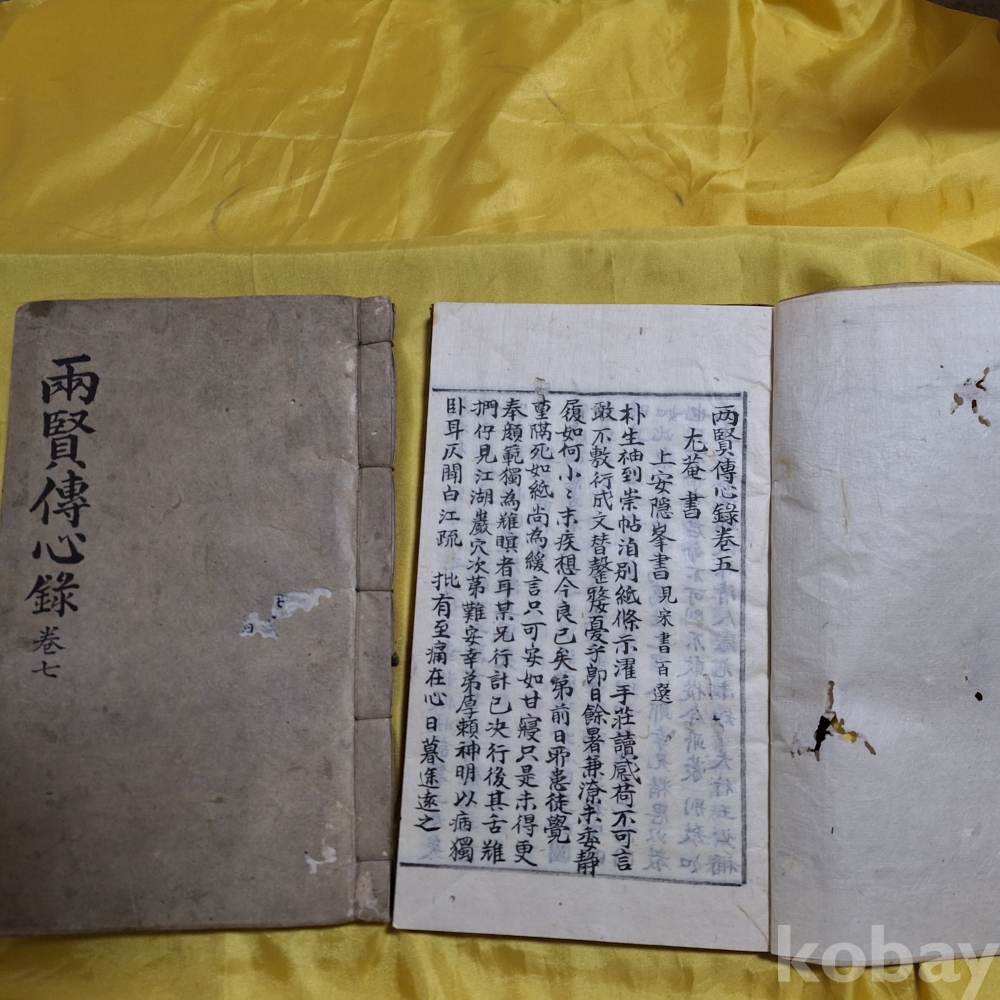 兩賢傳心錄
卷七
两賢傳心錄卷五
尤菴書
上安隱峯書見宋書百選
朴生袖到崇帖泊別紙條示濯手莊讀感荷不可言
敢不敷衍成文替罄嫠憂乎即日餘暑兼潦未委靜
履如何小〻末疾想今良已矣第前日耶患徒覺
重隔死如紙尚為緩言只可安如甘寢只是未得更
奉顏範獨為難瞑者耳某兄行計已决行後其舌難
捫仔見江湖巖穴次第難安幸弟厚賴神明以病獨
卧耳仄聞白江疏 批有至痛在心日暮途遠之
kobay